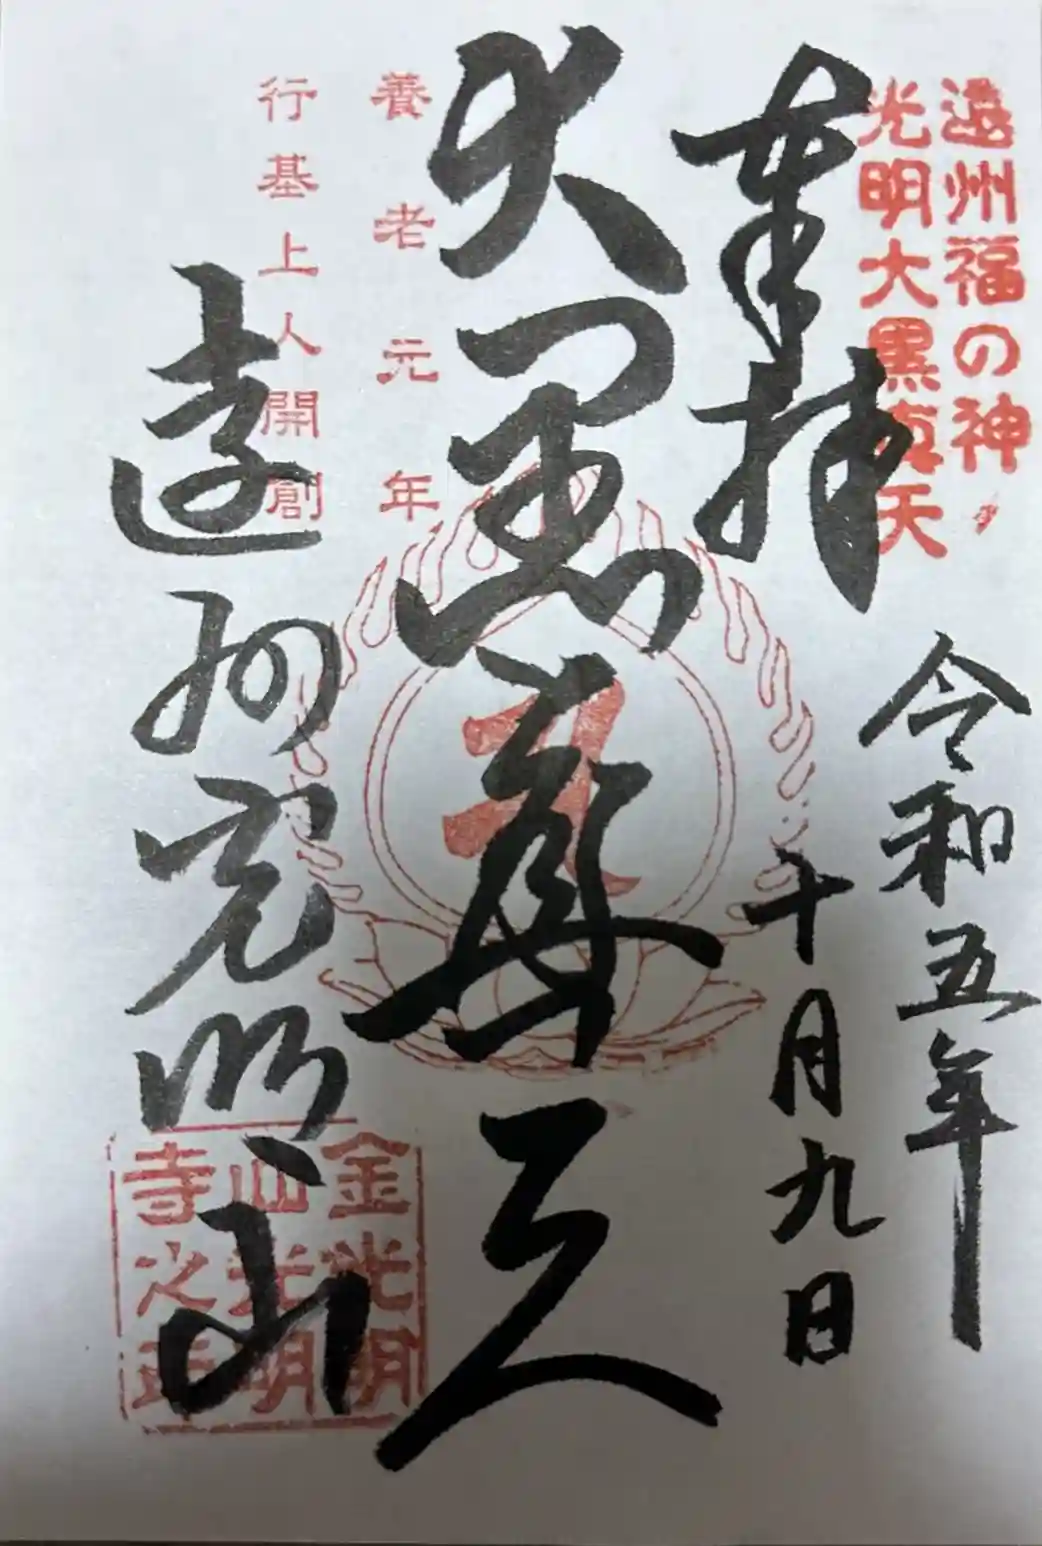 遠州福の神
光明大黒真天
奉拝
令和五年
十月九日
大黒尊天
養老元年
行基上人開創
遠州光明山
金光明
山光明
寺之